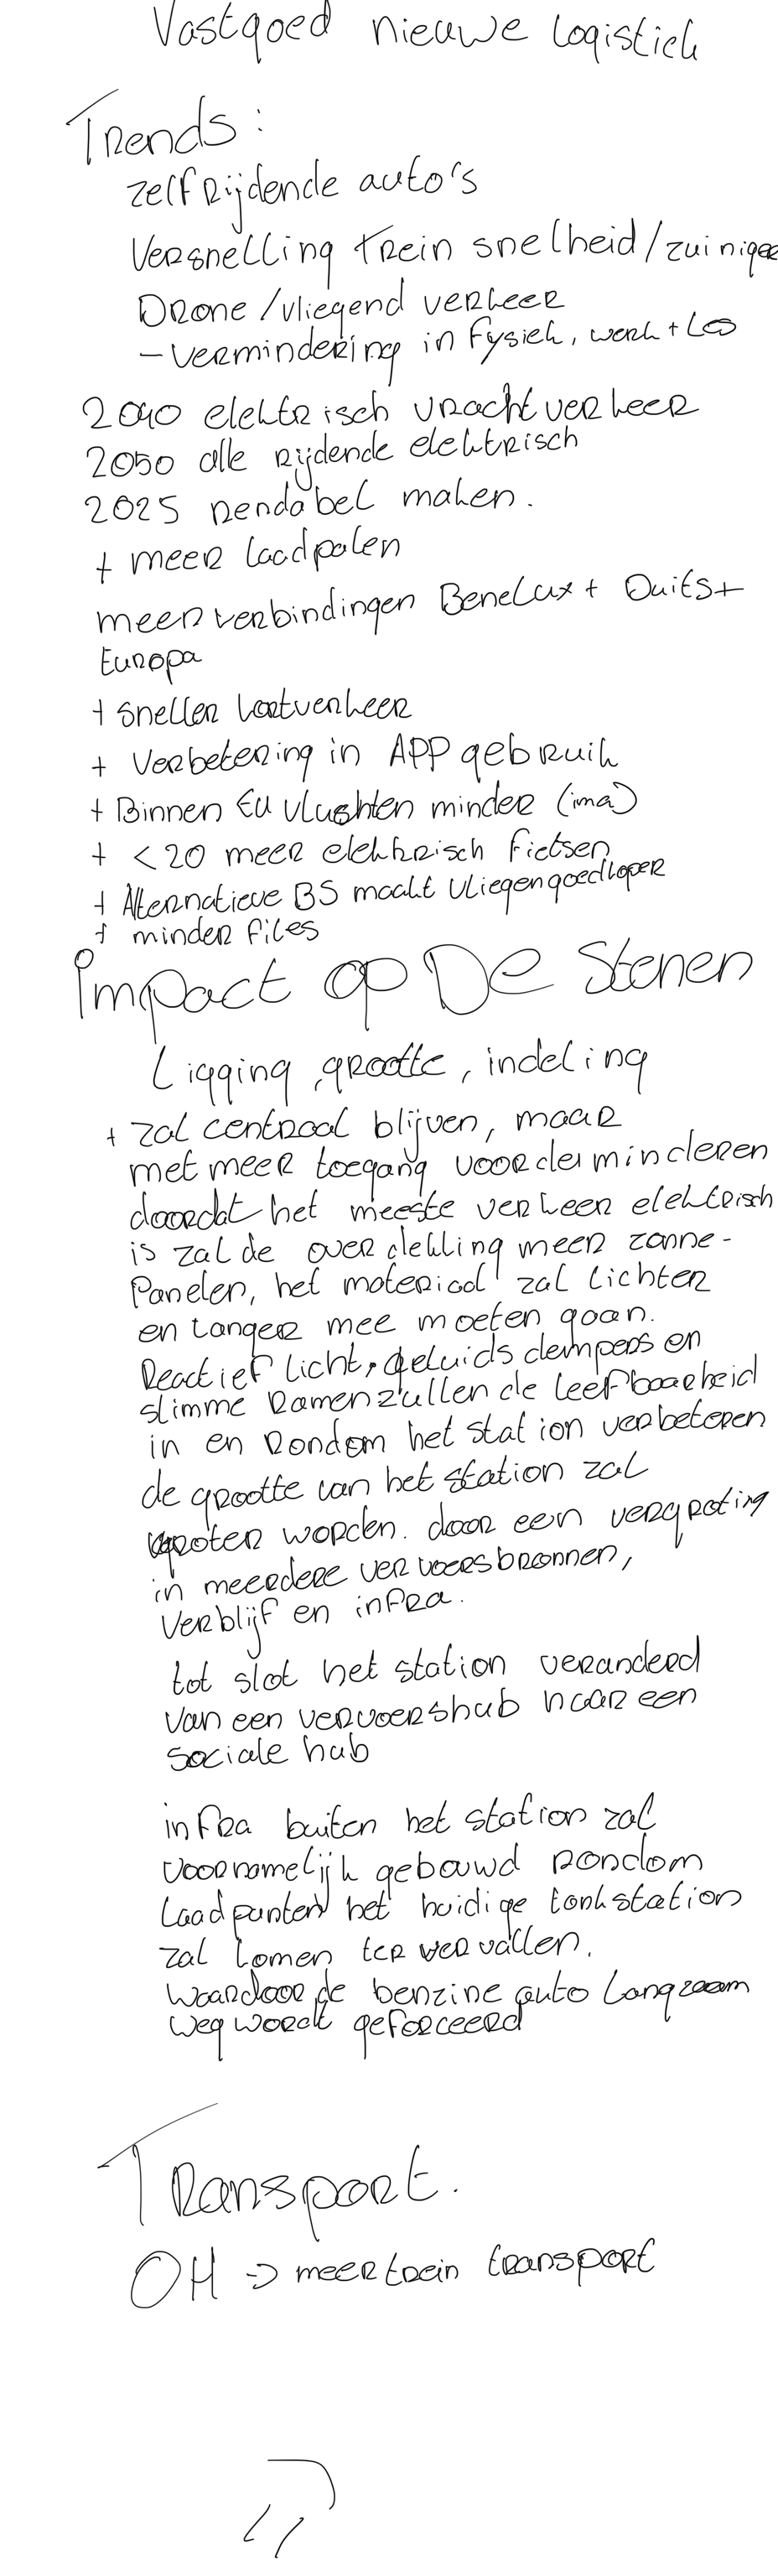 Vastgoed nieuwe logistiek
Trends:
zelfrijdende auto's
Versnelling trein snelheid/zuiniger
Drone/vliegend verkeer
- vermindering in fysiek, werk + les
2040 elektrisch vrachtverkeer
2050 alle rijdende elektrisch
2025 rendabel maken.
+ meer laadpalen
meer verbindingen Benelux + Duits +
Europa
+ sneller kortverkeer
+ Verbetering in APP gebruik
+ Binnen EU vluchten minder (ima)
+ <20 meer elektrisch fietsen
+ Alternatieve BS maakt vliegen goedkoper
+ minder files
impact op De Stenen
Ligging, grootte, indeling
+ zal centraal blijven, maar
met meer toegang voor de minderen
doordat het meeste verkeer elektrisch
is zal de overdekking meer zonne-
Panelen, het materiaal zal lichter
en langer mee moeten gaan.
Reactief licht, geluids dempers en
slimme Ramen zullen de leefbaarheid
in en Rondom het station verbeteren
de grootte van het station zal
groter worden. door een vergroting
in meerdere vervoersbronnen,
Verblijf en infra.
tot slot het station veranderd
van een vervoershub naar een
sociale hub
infra buiten het station zal
voornamelijk gebouwd rondom
laadpunten het huidige tankstation
zal komen ter vervallen.
Waardoor de benzine auto langzaam
weg wordt geforceerd
Transport.
OH -> meer trein transport